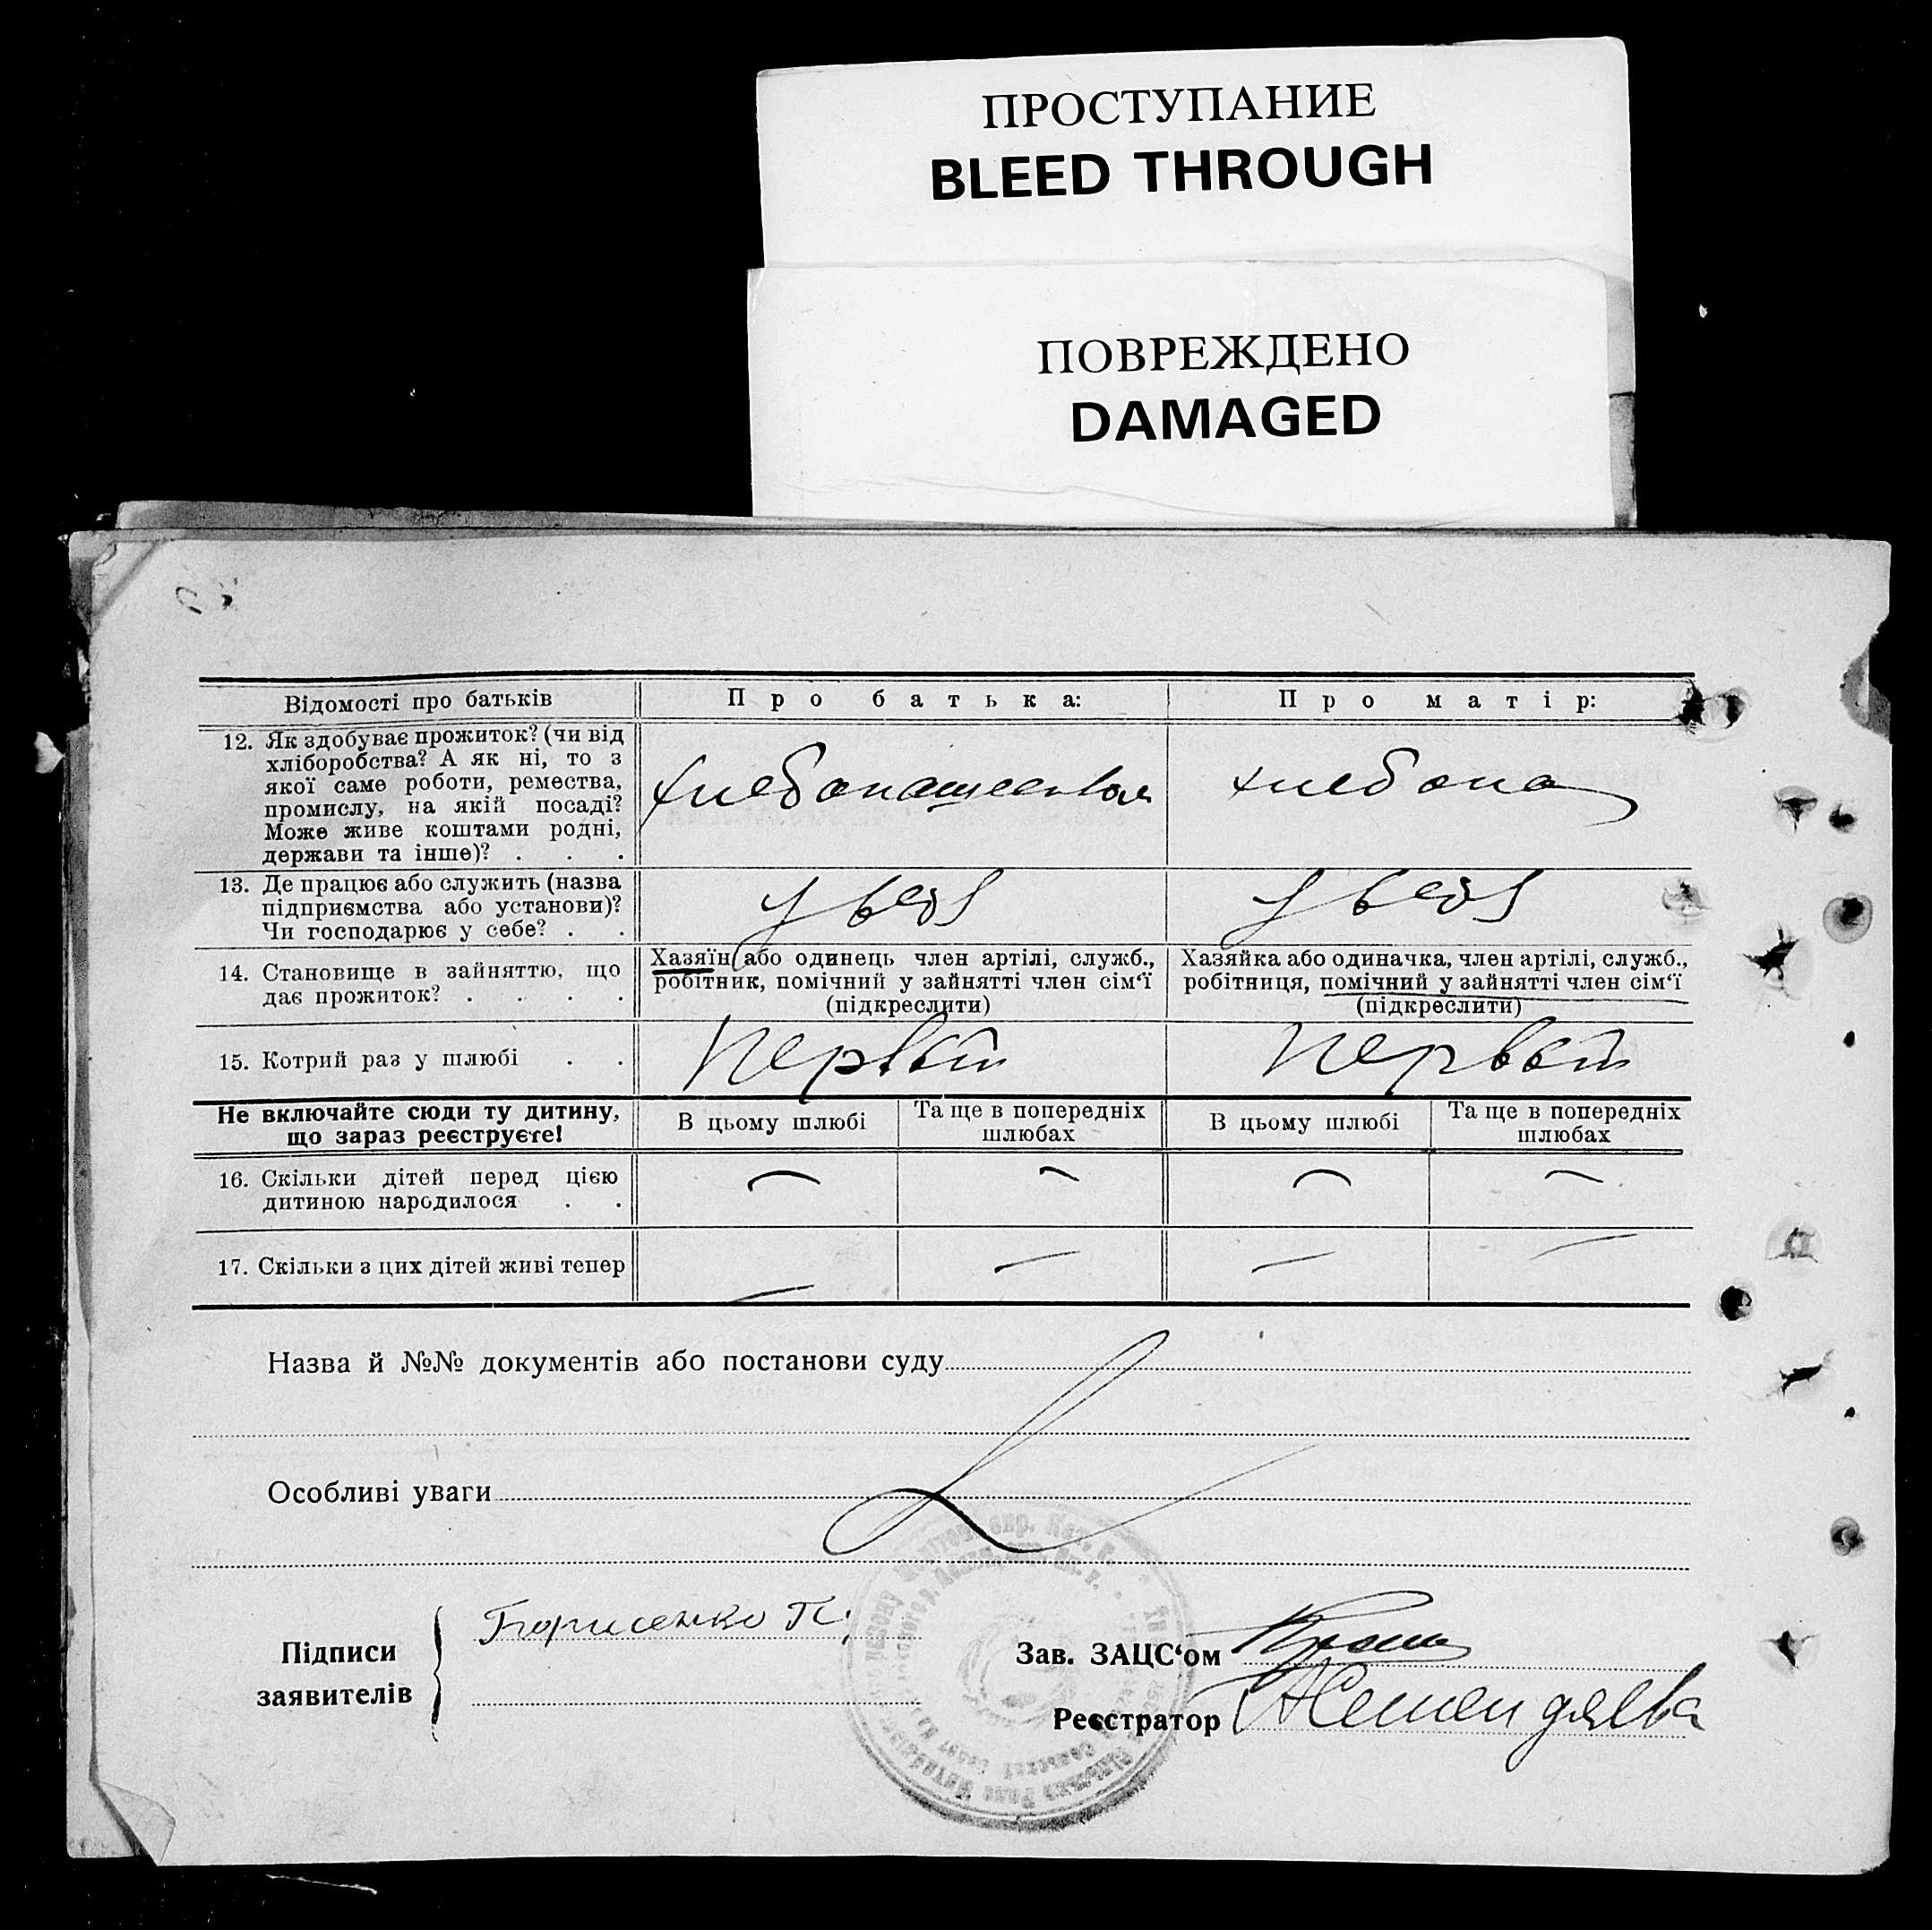 ПРОСТУПАНИЕ
BLEED THROUGH
ПОВРЕЖДЕНО
DAMAGED
Відомості про батьків
Про батька:
Про матір:
12. Як здобуває прожиток? (чи від
хліборобства? А як ні, то з
якої саме роботи, ремества,
промислу, на якій посаді?
Може живе коштами родні,
держави та інше)? . . .
хлебопашеством
хлебопа
13. Де працює або служить (назва
підприємства або установи)?
Чи господарює у себе? . .
у себя
у себя
14. Становище в зайняттю, що
дає прожиток? . . . .
Хазяїн або одинець член артілі, служб.,
робітник, помічний у зайнятті член сім'ї
(підкреслити)
Хазяйка або одиначка, член артілі, служб.,
робітниця, помічний у зайнятті член сім'ї
(підкреслити)
15. Котрий раз у шлюбі . .
Первый
Первый
Не включайте сюди ту дитину,
що зараз реєструєте!
В цьому шлюбі
Та ще в попередніх
шлюбах
В цьому шлюбі
Та ще в попередніх
шлюбах
16. Скільки дітей перед цією
дитиною народилося . .
—
—
—
—
17. Скільки з цих дітей живі тепер
—
—
—
—
Назва й №№ документів або постанови суду
Особливі уваги
Підписи
заявителів
Борисенко П.
Зав. ЗАЦС'ом
Реєстратор